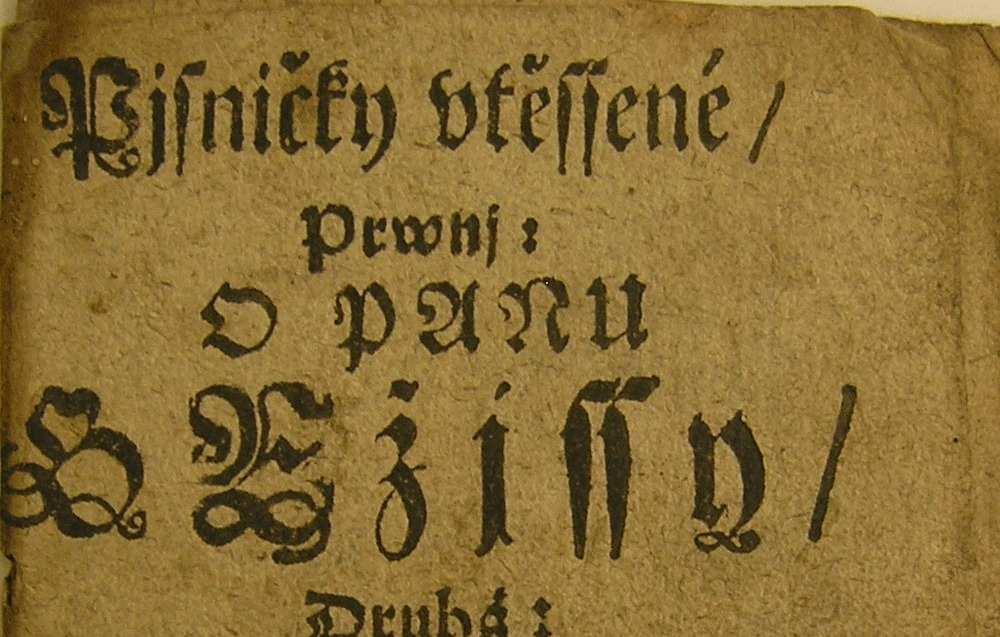 Pjsničky vtěssené /
Prwnj :
O PANU
GEžissy /
Druhá :